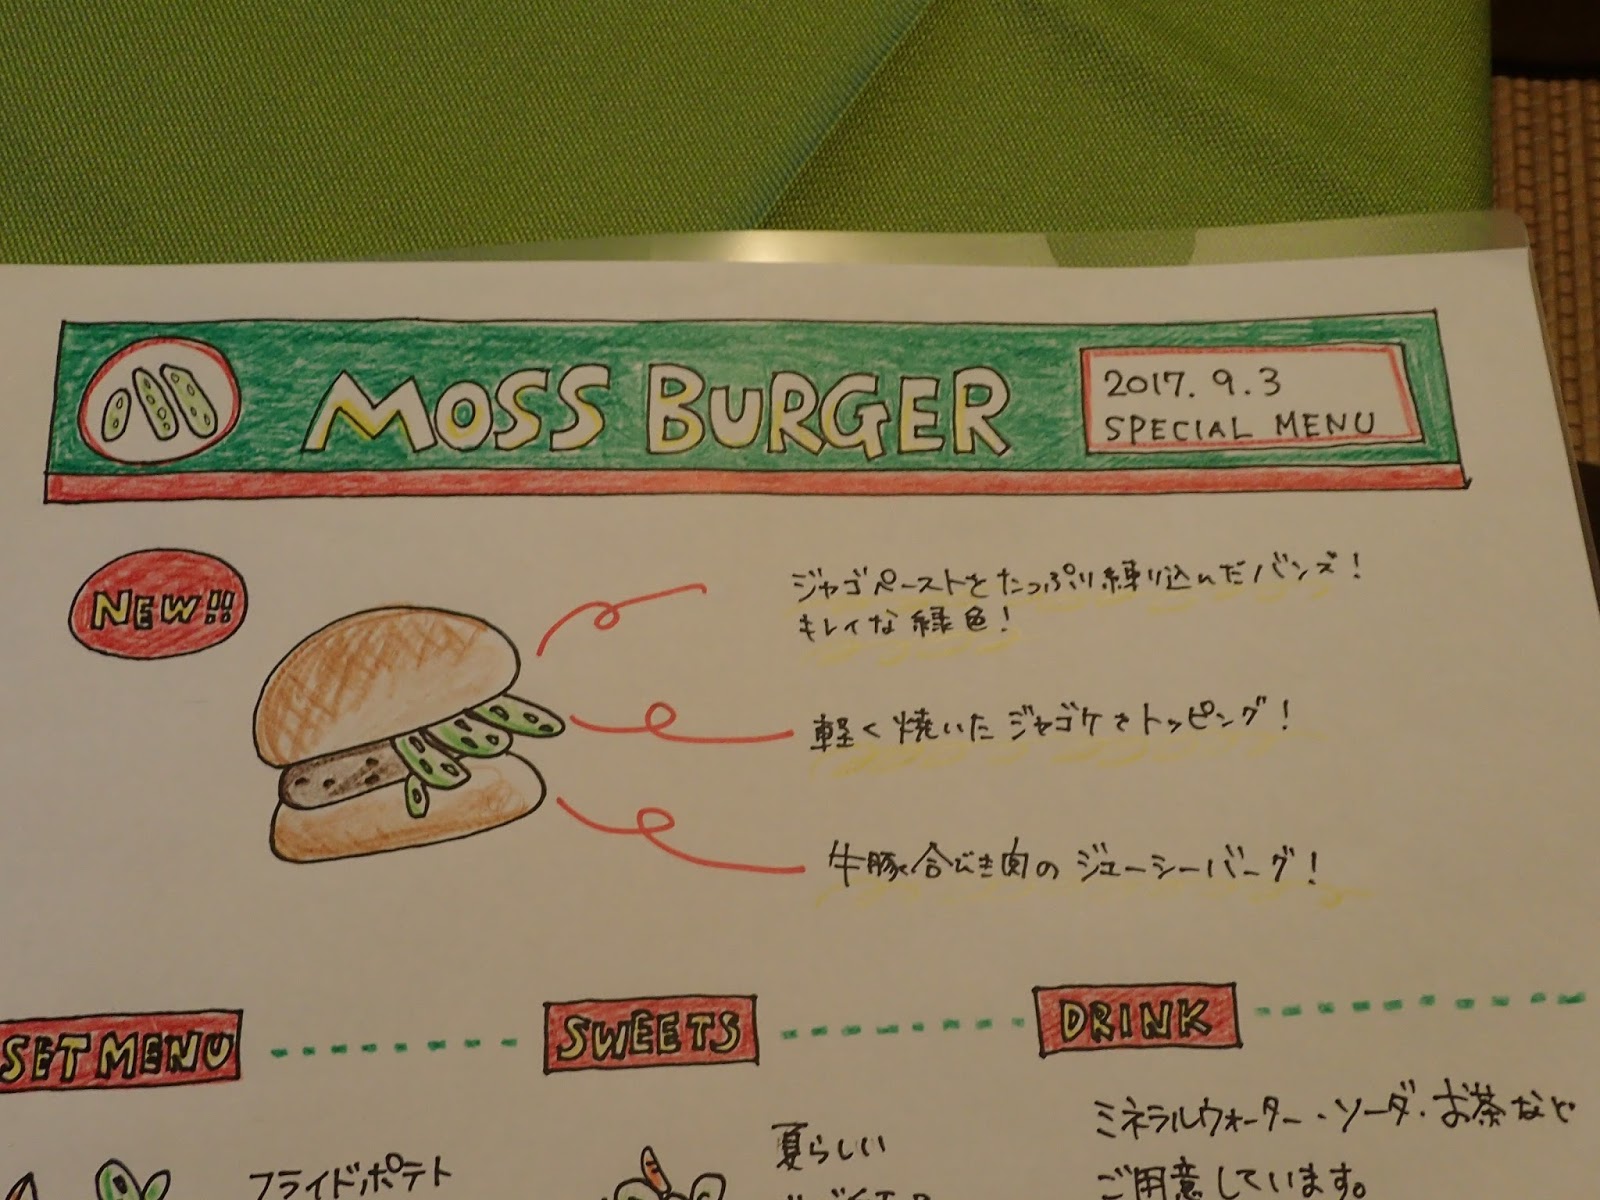 MOSS BURGER
2017. 9. 3
SPECIAL MENU
NEW!!
ジャゴペーストをたっぷり練り込んだバンズ!
キレイな緑色!
軽く焼いたジャゴケをトッピング!
牛豚合びき肉のジューシーバーグ!
SET MENU
SWEETS
DRINK
フライドポテト
夏らしい
ミネラルウォーター・ソーダ・お茶など
ご用意しています。